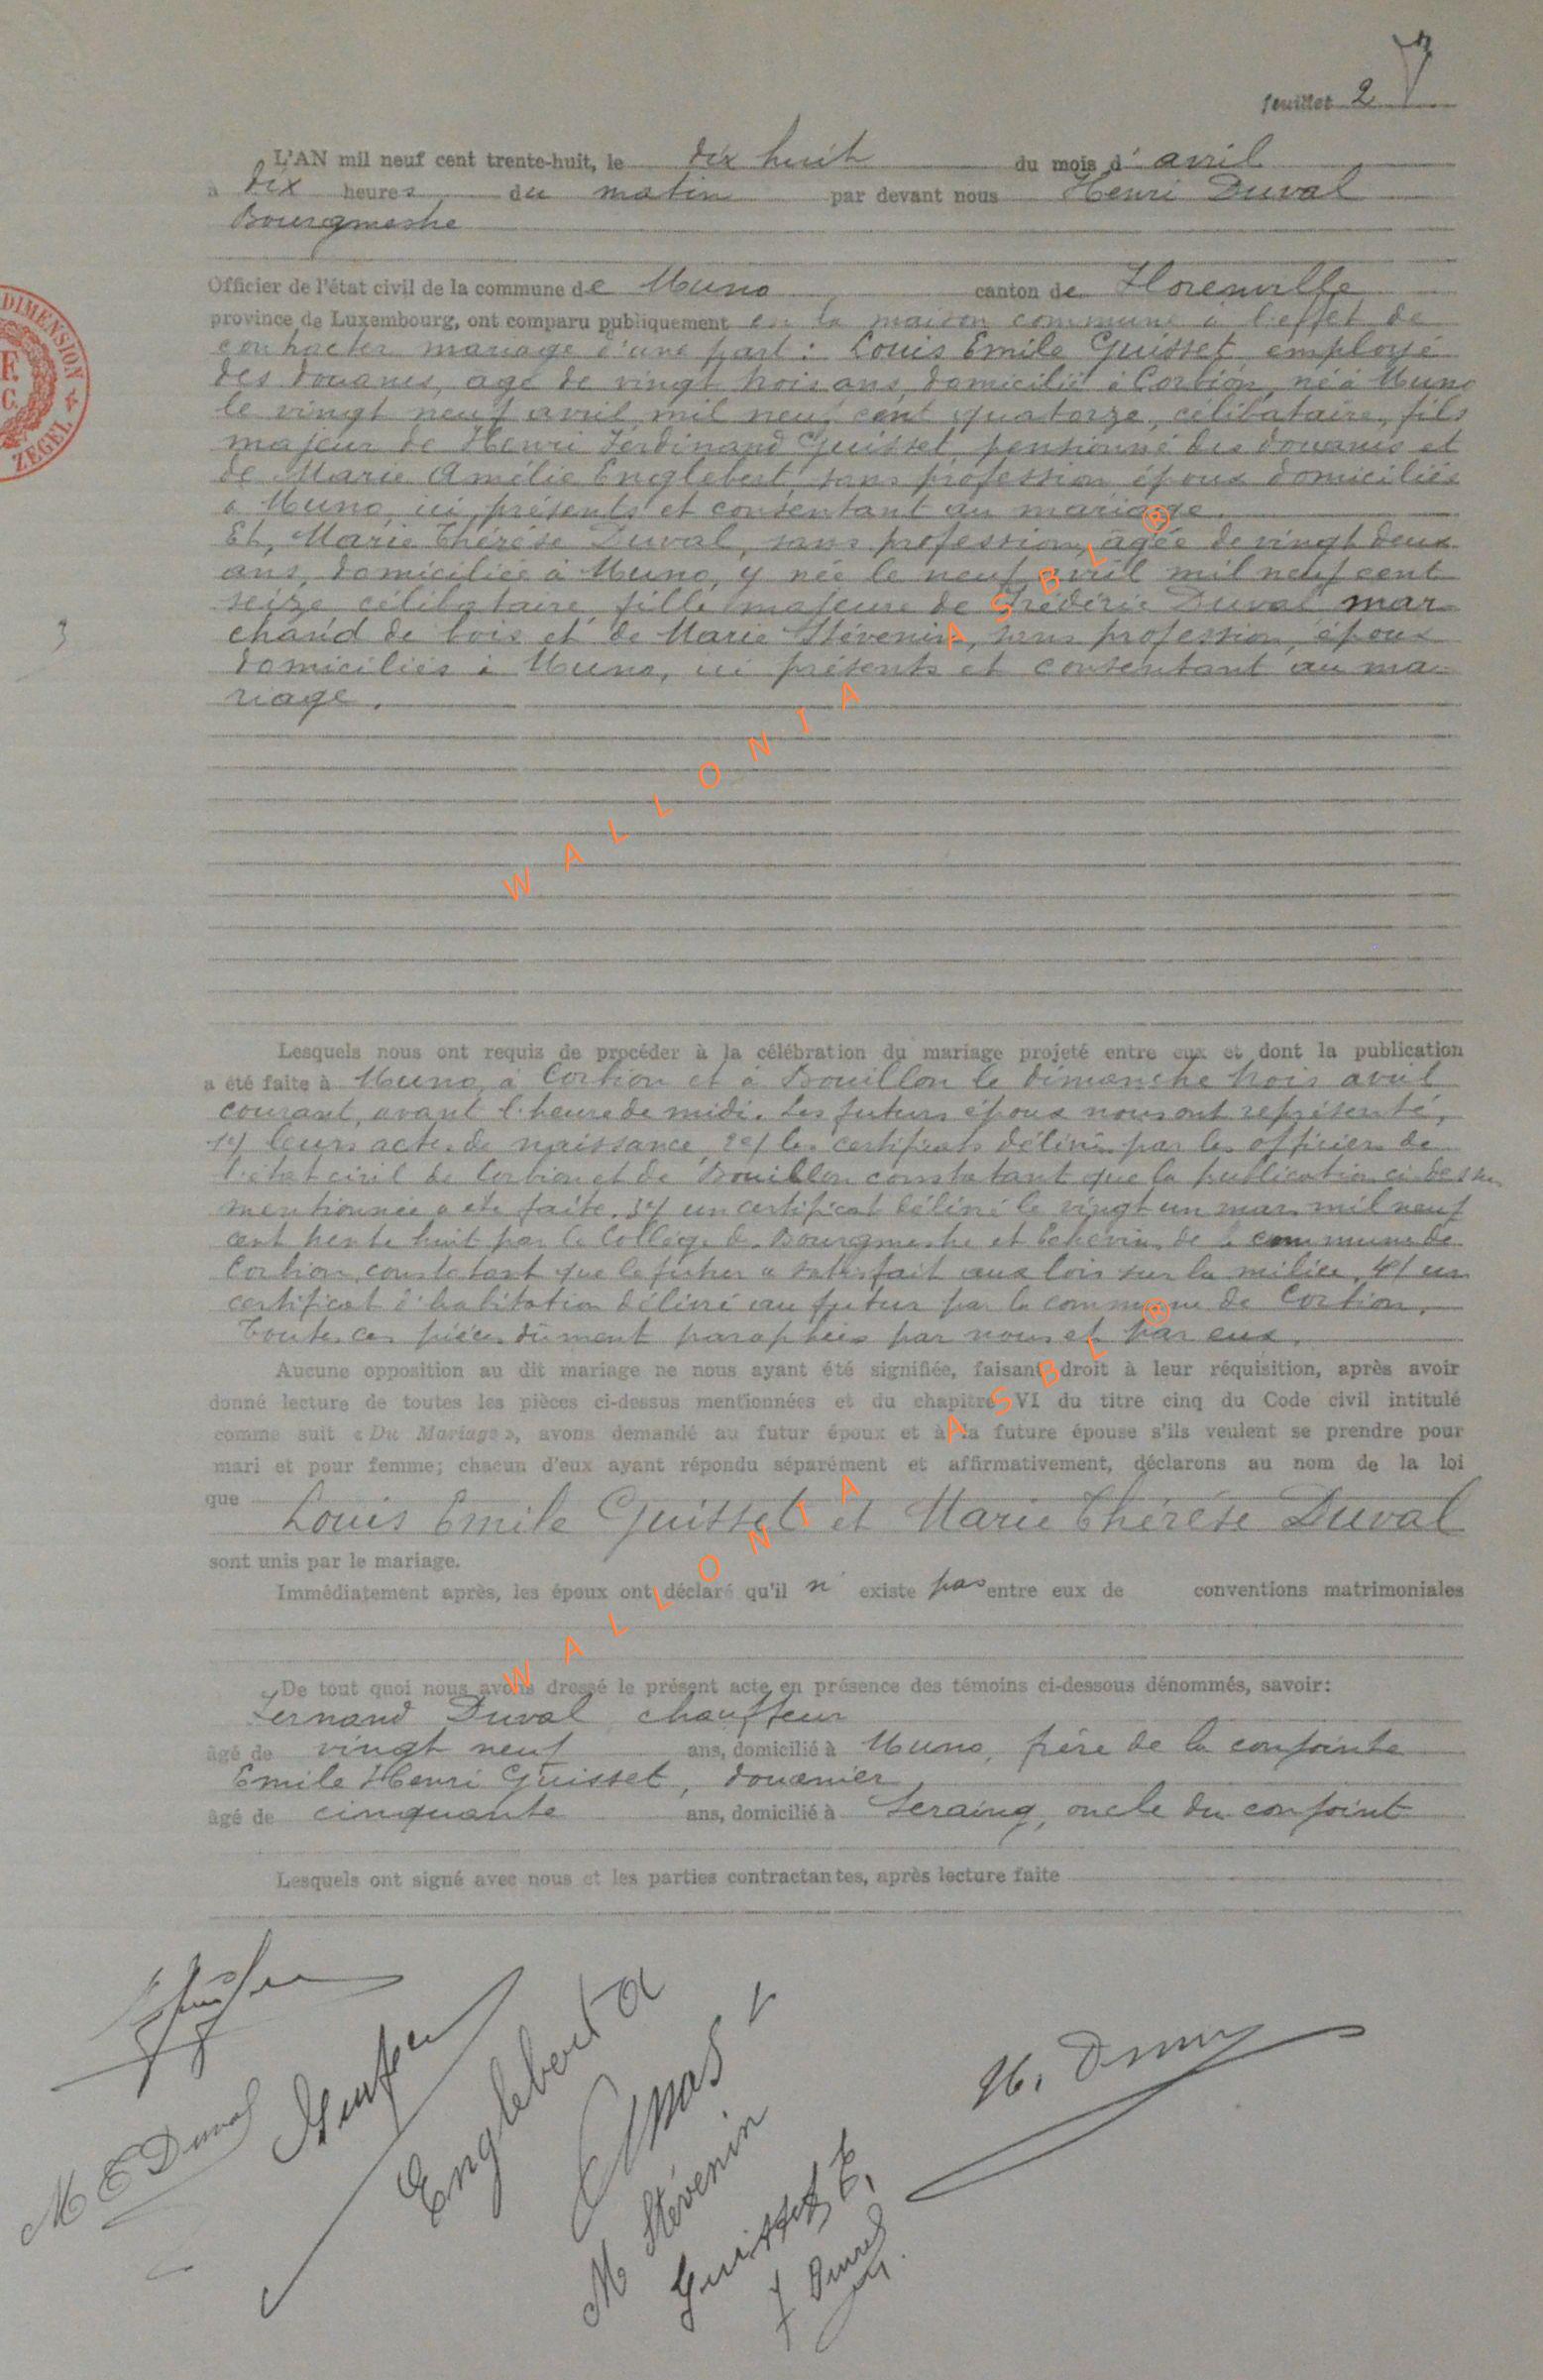 feuillet 2
L'AN mil neuf cent trente-huit, le dix huit du mois d' avril
à dix heures du matin par devant nous Henri Duval
Bourgmestre
Officier de l'état civil de la commune de Muno canton de Florenville
province de Luxembourg, ont comparu publiquement en la maison commune à l'effet de
contracter mariage d'une part : Louis Emile Guisset employé
des douanes, agé de vingt trois ans, domicilié à Corbion, né à Muno
le vingt neuf avril mil neuf cent quatorze, célibataire, fils
majeur de Henri Ferdinand Guisset, pensionné des douanes et
de Marie Amélie Englebert, sans profession, époux domiciliés
à Muno, ici présents et consentant au mariage.
Et, Marie Thérèse Duval, sans profession, âgée de vingt deux
ans, domiciliée à Muno, y née le neuf avril mil neuf cent
seize célibataire, fille majeure de Frédéric Duval mar-
chand de bois et de Marie Stévenin, sans profession, époux
domiciliés à Muno, ici présents et consentant au ma-
riage.
3
DIMENSION
F.
C.
ZEGEL
WALLONIA ASBL ®
Lesquels nous ont requis de procéder à la célébration du mariage projeté entre eux et dont la publication
a été faite à Muno, à Corbion et à Bouillon le dimanche trois avril
courant, avant l'heure de midi. Les futurs époux nous ont représenté,
1°/ leurs actes de naissance, 2°/ les certificats délivrés par les officiers de
l'état civil de Corbion et de Bouillon constatant que la publication ci dessus
mentionnée a été faite. 3°/ un certificat délivré le vingt un mars mil neuf
cent trente huit par le Collège de Bourgmestre et Echevins de la commune de
Corbion, constatant que le futur a satisfait aux lois sur la milice, 4°/ un
certificat d'habitation délivré au futur par la commune de Corbion.
Toutes ces pièces dûment paraphées par nous et par eux.
Aucune opposition au dit mariage ne nous ayant été signifiée, faisant droit à leur réquisition, après avoir
donné lecture de toutes les pièces ci-dessus mentionnées et du chapitre VI du titre cinq du Code civil intitulé
comme suit « Du Mariage », avons demandé au futur époux et à la future épouse s'ils veulent se prendre pour
mari et pour femme; chacun d'eux ayant répondu séparément et affirmativement, déclarons au nom de la loi
que Louis Emile Guisset et Marie Thérèse Duval
sont unis par le mariage.
Immédiatement après, les époux ont déclaré qu'il n' existe pas entre eux de conventions matrimoniales
WALLONIA ASBL ®
De tout quoi nous avons dressé le présent acte en présence des témoins ci-dessous dénommés, savoir:
Fernand Duval chauffeur
âgé de vingt neuf ans, domicilié à Muno, frère de la conjointe
Emile Henri Guisset, douanier,
âgé de cinquante ans, domicilié à Seraing, oncle du conjoint
Lesquels ont signé avec nous et les parties contractantes, après lecture faite
H. Duval
Englebert a
M Duval
M Stévenin
Guisset E.
f Duval